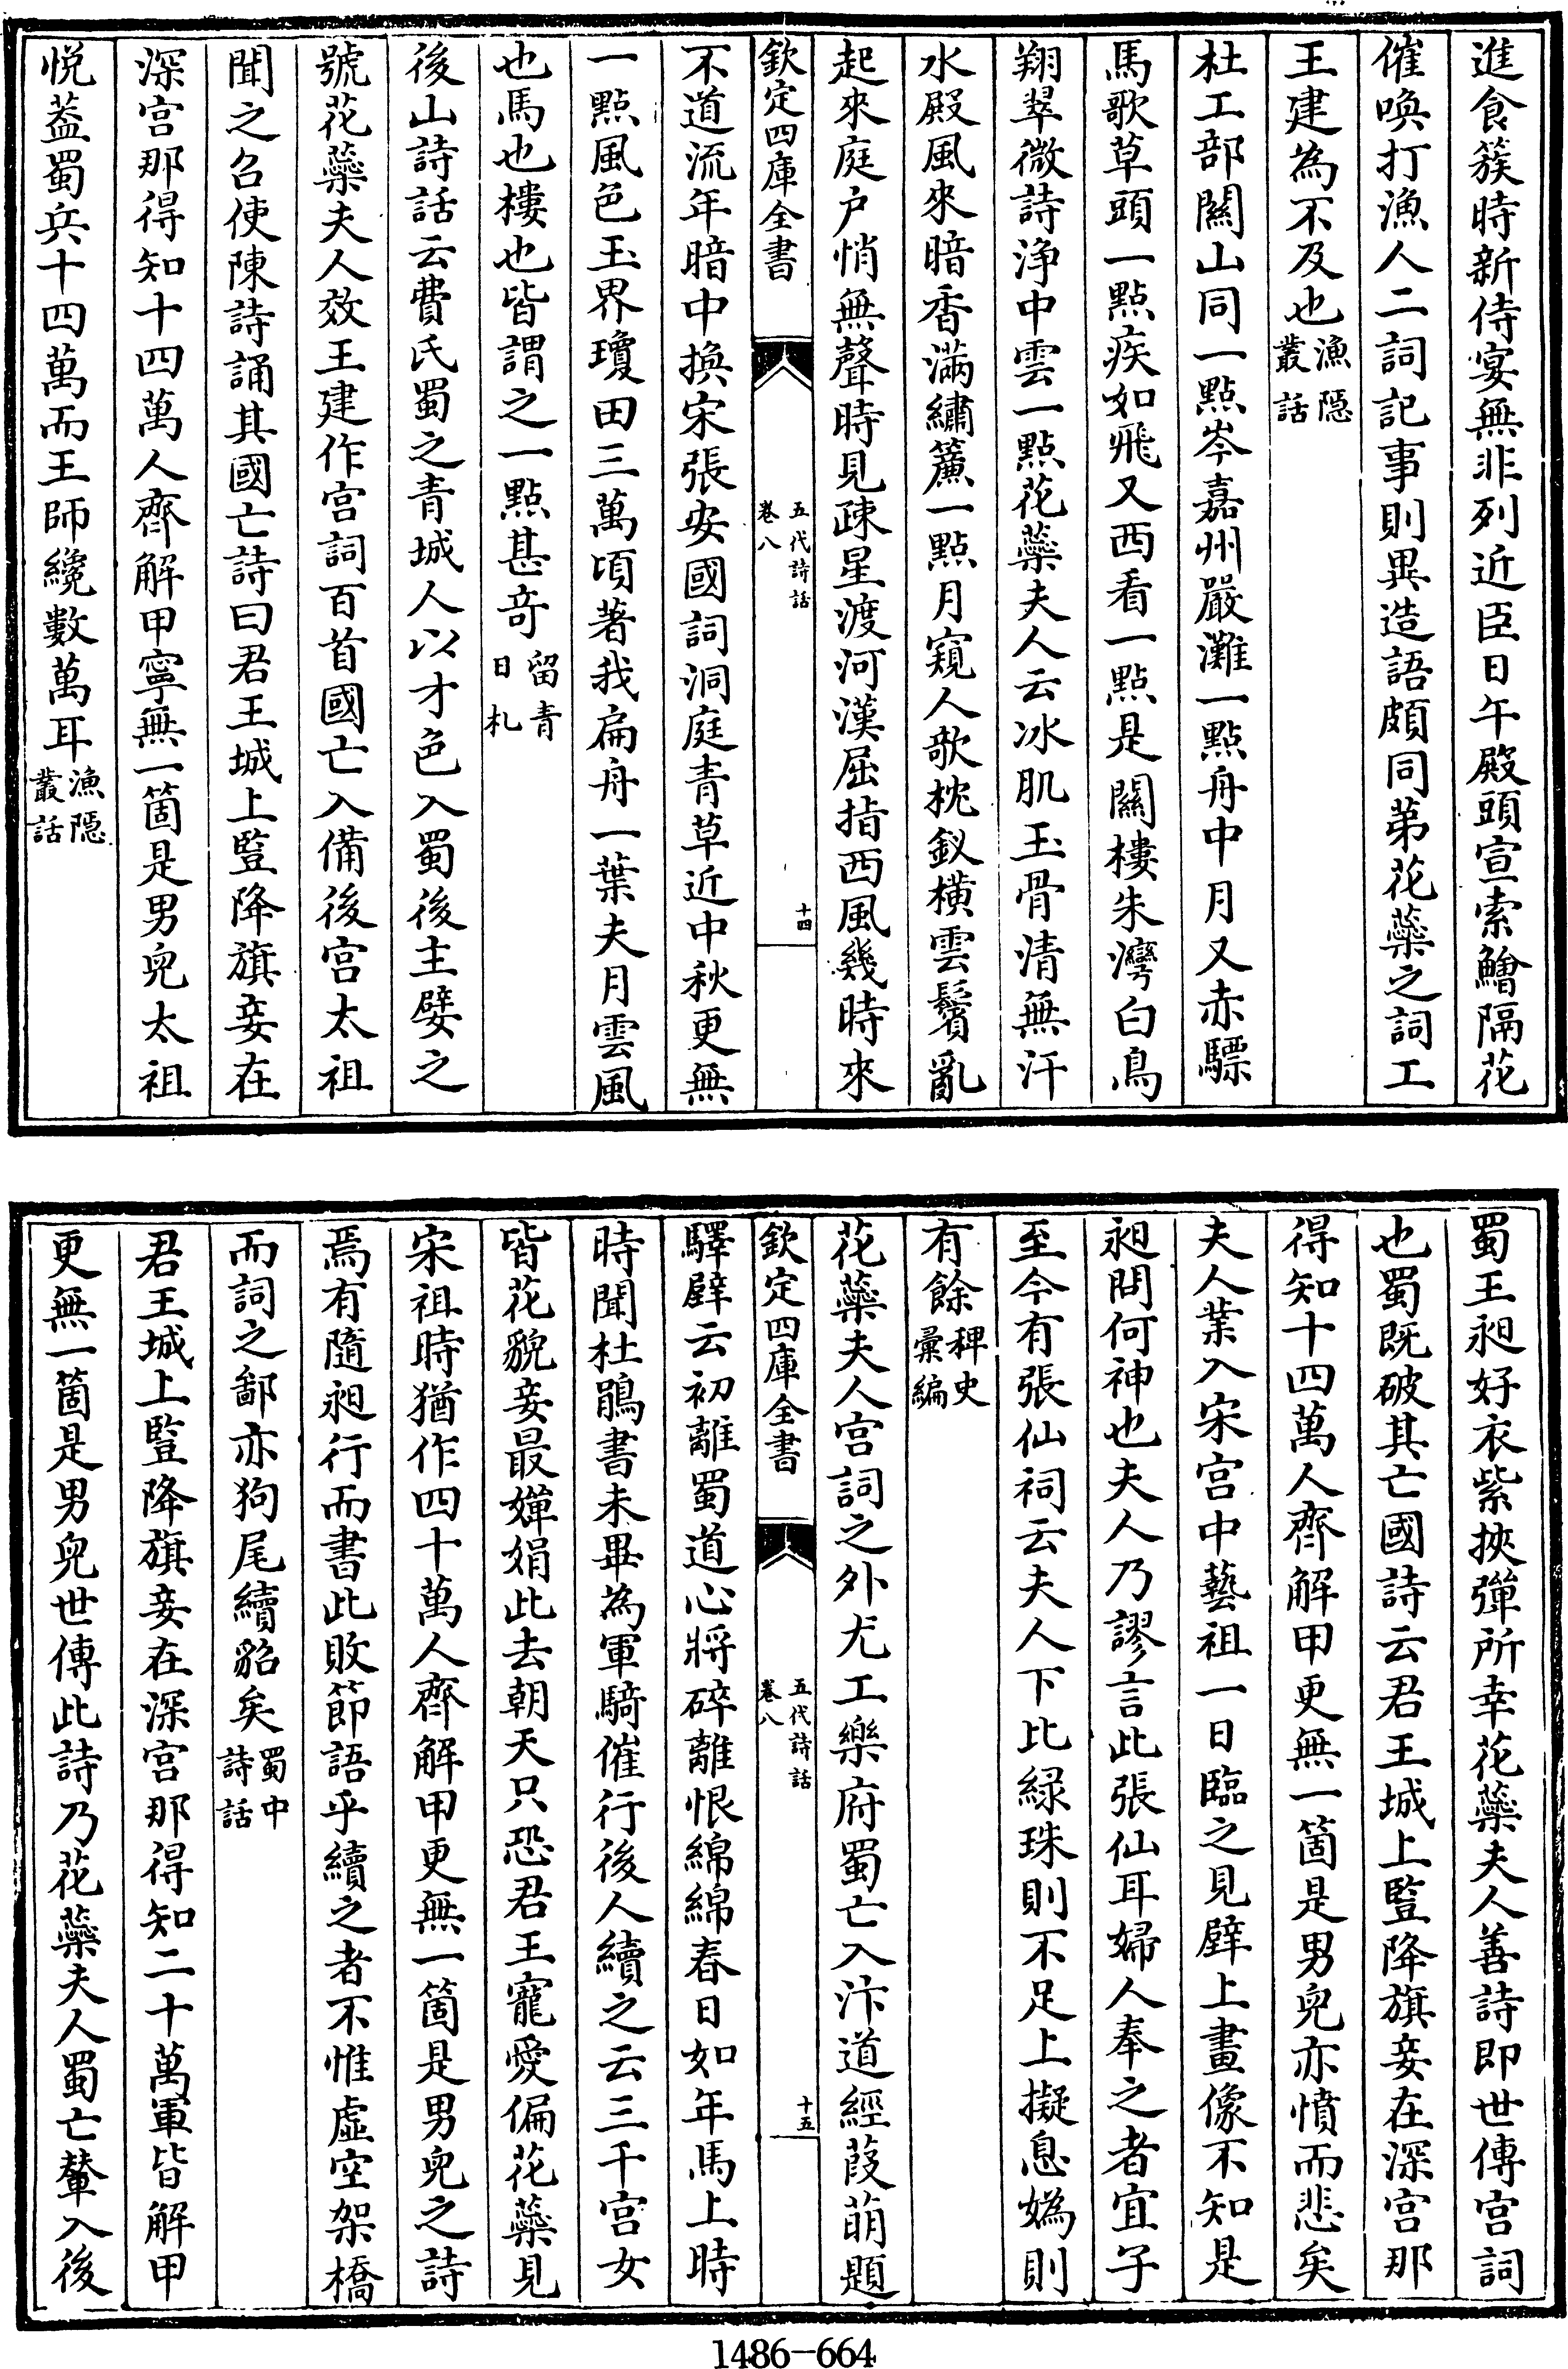 進食簇時新侍宴無非列近臣日午殿頭宣索鱠隔花
催喚打漁人二詞記事則異造語頗同第花蘂之詞工
王建為不及也漁隠叢話
杜工部關山同一點岑嘉州嚴灘一點舟中月又赤驃
馬歌草頭一點疾如飛又西看一點是關樓朱灣白鳥
翔翠微詩浄中雲一點花蘂夫人云冰肌玉骨清無汗
水殿風來暗香滿繡簾一點月窺人欹枕釵橫雲鬢亂
起來庭户悄無聲時見疎星渡河漢屈指西風幾時來
欽定四庫全書 五代詩話卷八 十四
不道流年暗中換宋張安國詞洞庭青草近中秋更無
一點風色玉界瓊田三萬頃著我扁舟一葉夫月雲風
也馬也樓也皆謂之一點甚竒留青日札
後山詩話云費氏蜀之青城人以才色入蜀後主嬖之
號花蘂夫人效王建作宫詞百首國亡入備後宫太祖
聞之召使陳詩誦其國亡詩曰君王城上竪降旗妾在
深宫那得知十四萬人齊解甲寧無一箇是男兒太祖
悦葢蜀兵十四萬而王師纔數萬耳漁隠叢話
蜀王昶好衣紫挾彈所幸花蘂夫人善詩即世傳宫詞
也蜀既破其亡國詩云君王城上竪降旗妾在深宫那
得知十四萬人齊解甲更無一箇是男兒亦憤而悲矣
夫人業入宋宫中藝祖一日臨之見壁上畫像不知是
昶問何神也夫人乃謬言此張仙耳婦人奉之者宜子
至今有張仙祠云夫人下比緑珠則不足上擬息媯則
有餘稗史彚編
花蘂夫人宫詞之外尤工樂府蜀亡入汴道經葭萌題
欽定四庫全書 五代詩話卷八 十五
驛壁云初離蜀道心將碎離恨綿綿春日如年馬上時
時聞杜鵑書未畢為軍騎催行後人續之云三千宫女
皆花貌妾最嬋娟此去朝天只恐君王寵愛偏花蘂見
宋祖時猶作四十萬人齊解甲更無一箇是男兒之詩
焉有隨昶行而書此敗節語乎續之者不惟虚空架橋
而詞之鄙亦狗尾續貂矣蜀中詩話
君王城上竪降旗妾在深宫那得知二十萬軍皆解甲
更無一箇是男兒世傳此詩乃花蘂夫人蜀亡輦入後
1486-664